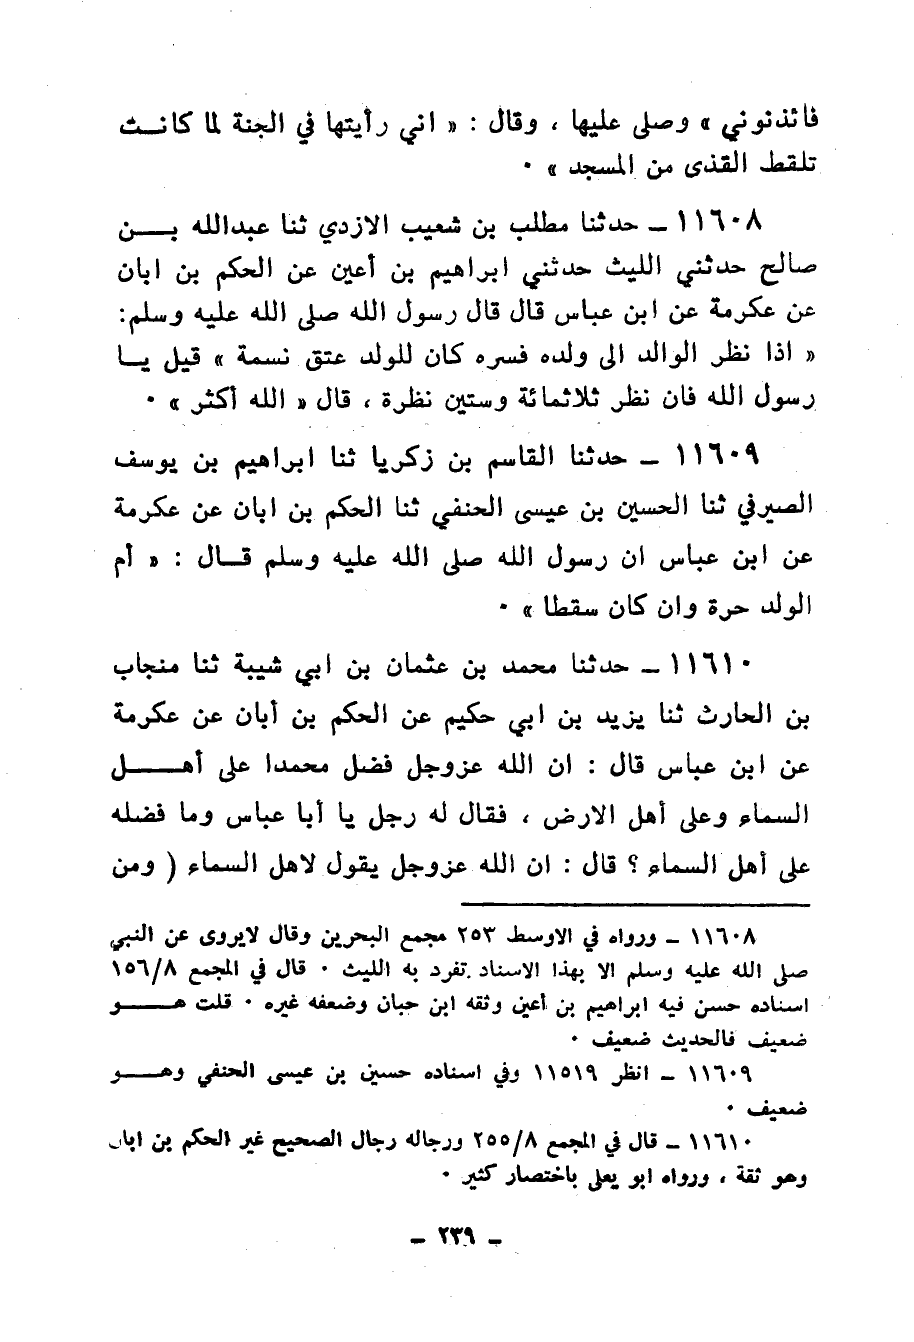 فائذنوني » وصلى عليها ، وقال : « اني رأيتها في الجنة لما كانت
تلقط القذى من المسجد » ٠
١١٦٠٨ ـ حدثنا مطلب بن شعيب الازدي ثنا عبدالله بن
صالح حدثني الليث حدثني ابراهيم بن أعين عن الحكم بن ابان
عن عكرمة عن ابن عباس قال قال رسول الله صلى الله عليه وسلم:
« اذا نظر الوالد الى ولده فسره كان للولد عتق نسمة » قيل يا
رسول الله فان نظر ثلاثمائة وستين نظرة ، قال « الله أكثر » ٠
١١٦٠٩ ـ حدثنا القاسم بن زكريا ثنا ابراهيم بن يوسف
الصيرفي ثنا الحسين بن عيسى الحنفي ثنا الحكم بن ابان عن عكرمة
عن ابن عباس ان رسول الله صلى الله عليه وسلم قال : « أم
الولد حرة وان كان سقطا » ٠
١١٦١٠ ـ حدثنا محمد بن عثمان بن ابي شيبة ثنا منجاب
بن الحارث ثنا يزيد بن ابي حكيم عن الحكم بن أبان عن عكرمة
عن ابن عباس قال : ان الله عزوجل فضل محمدا على أهل
السماء وعلى أهل الارض ، فقال له رجل يا أبا عباس وما فضله
على أهل السماء ؟ قال : ان الله عزوجل يقول لاهل السماء ( ومن
١١٦٠٨ ـ ورواه في الاوسط ٢٥٣ مجمع البحرين وقال لايروى عن النبي
صلى الله عليه وسلم الا بهذا الاسناد تفرد به الليث ٠ قال في المجمع ١٥٦/٨
اسناده حسن فيه ابراهيم بن أعين وثقه ابن حبان وضعفه غيره ٠ قلت هو
ضعيف فالحديث ضعيف ٠
١١٦٠٩ ـ انظر ١١٥١٩ وفي اسناده حسين بن عيسى الحنفي وهو
ضعيف ٠
١١٦١٠ ـ قال في المجمع ٢٥٥/٨ ورجاله رجال الصحيح غير الحكم بن ابان
وهو ثقة ، ورواه ابو يعلى باختصار كثير ٠
ـ ٢٣٩ ـ